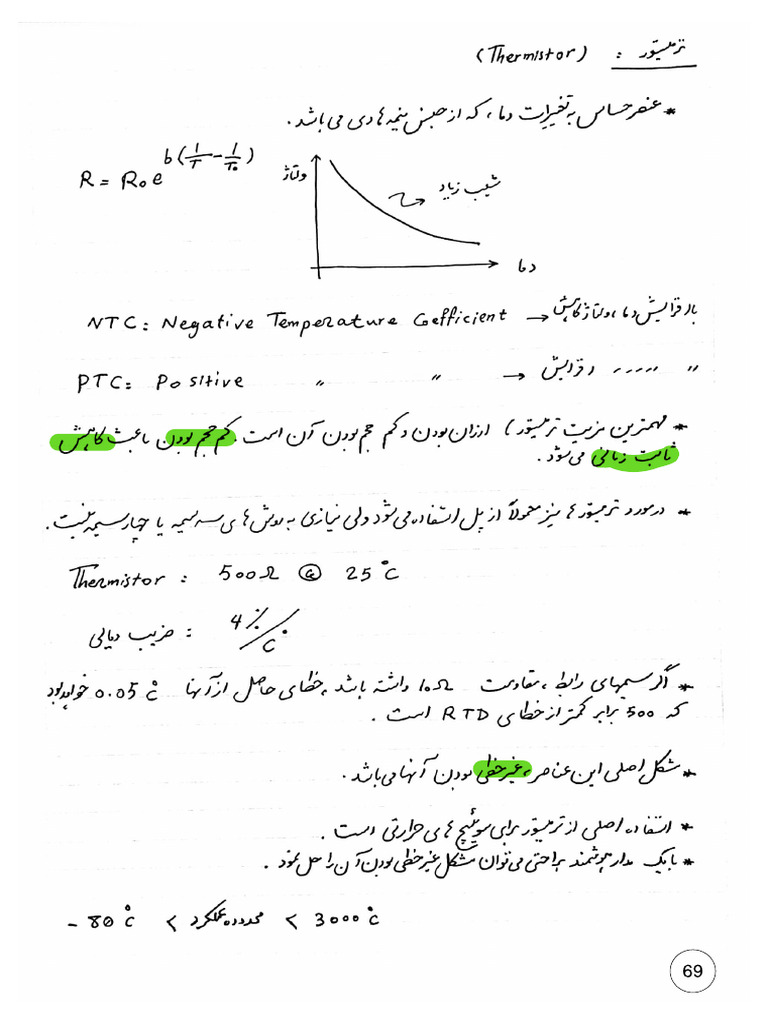 ترمیستور : (Thermistor)
* عنصر حساس به تغییرات دما ، که از جنس نیمه هادی می باشد .
R = R₀ e^{b(1/T - 1/T₀)}
ولتاژ
شیب زیاد
دما
NTC : Negative Temperature Coefficient → با افزایش دما ، ولتاژ کاهش
PTC : Positive " " → افزایش " " " "
* مهمترین مزیت ترمیستور ارزان بودن و کم حجم بودن آن است . کم حجم بودن باعث کاهش
ثابت زمانی می شود .
* درمورد ترمیستور ها نیز معمولاً از پل استفاده می شود ولی نیازی به روش های سه سیمه یا چهار سیمه نیست .
Thermistor : 500Ω @ 25°C
ضریب دمایی : 4%/°C
* اگر سیمهای رابط ، مقاومت 10Ω داشته باشد ، خطای حاصل از آنها 0.05°C خواهد بود
که 500 برابر کمتر از خطای RTD است .
* شکل اصلی این عناصر ، غیر خطی بودن آنها می باشد .
* استفاده اصلی از ترمیستور برای سوئیچ های حرارتی است .
* با یک مدار هوشمند براحتی می توان مشکل غیر خطی بودن آن را حل نمود .
- 80°C < محدوده عملکرد < 3000°C
69